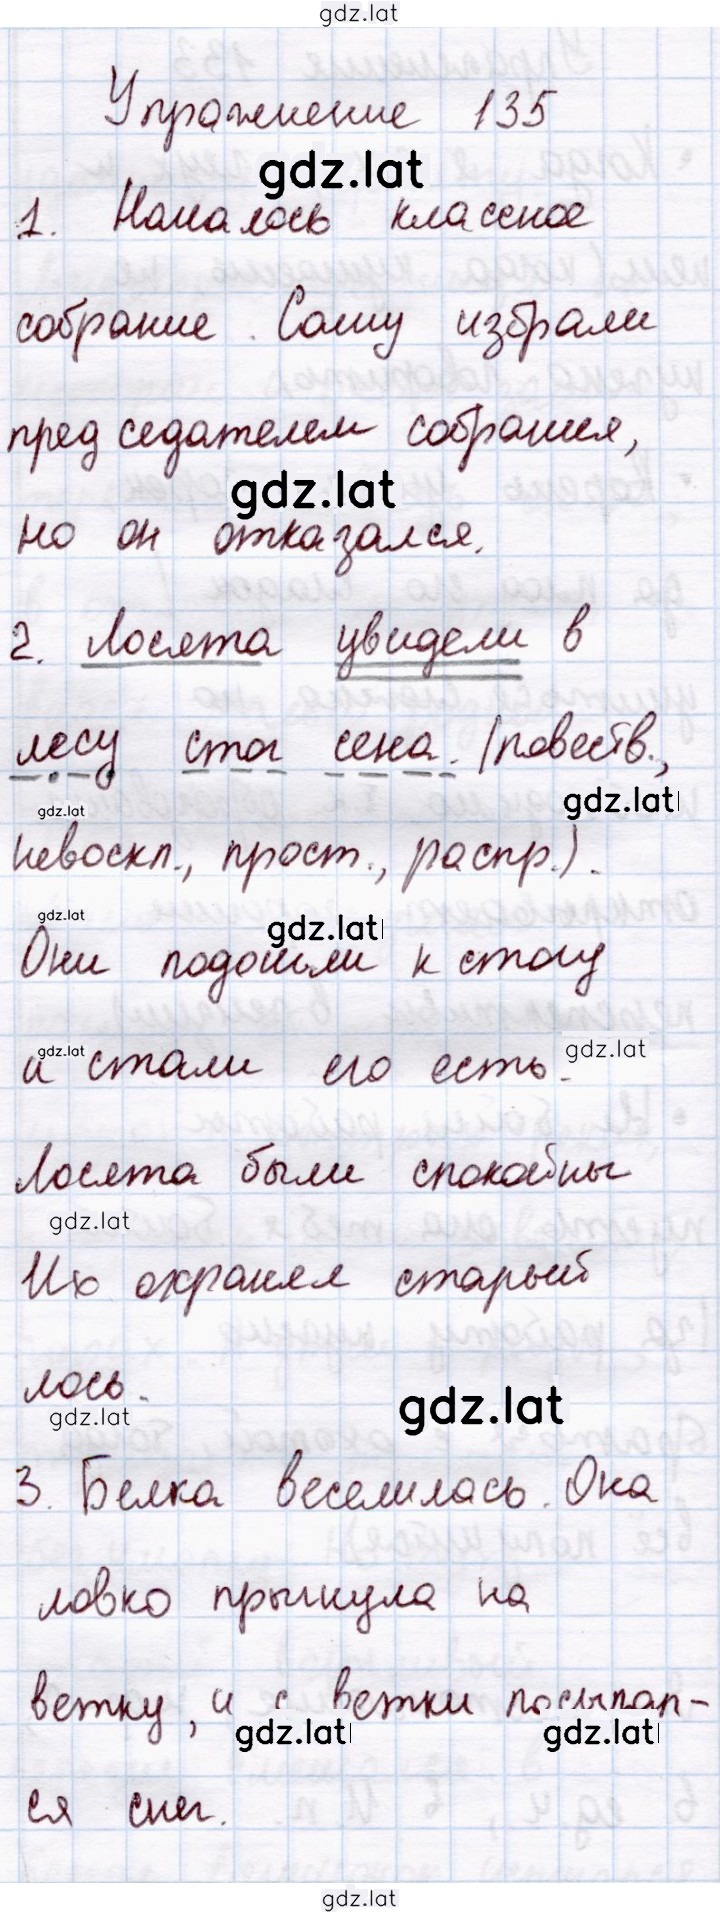 gdz.lat
Упражнение 135
gdz.lat
1. Началось классное
собрание. Сашу избрали
председателем собрания,
gdz.lat
но он отказался.
2. Лосята увидели в
лесу стог сена. (повеств.,
gdz.lat gdz.lat
невоскл., прост., распр.).
gdz.lat gdz.lat
Они подошли к стогу
gdz.lat gdz.lat
и стали его есть.
Лосята были спокойны
gdz.lat
Их охранял старый
лось.
gdz.lat gdz.lat
3. Белка веселилась. Она
ловко прыгнула на
ветку, и с ветки посыпал-
gdz.lat gdz.lat
ся снег.
gdz.lat